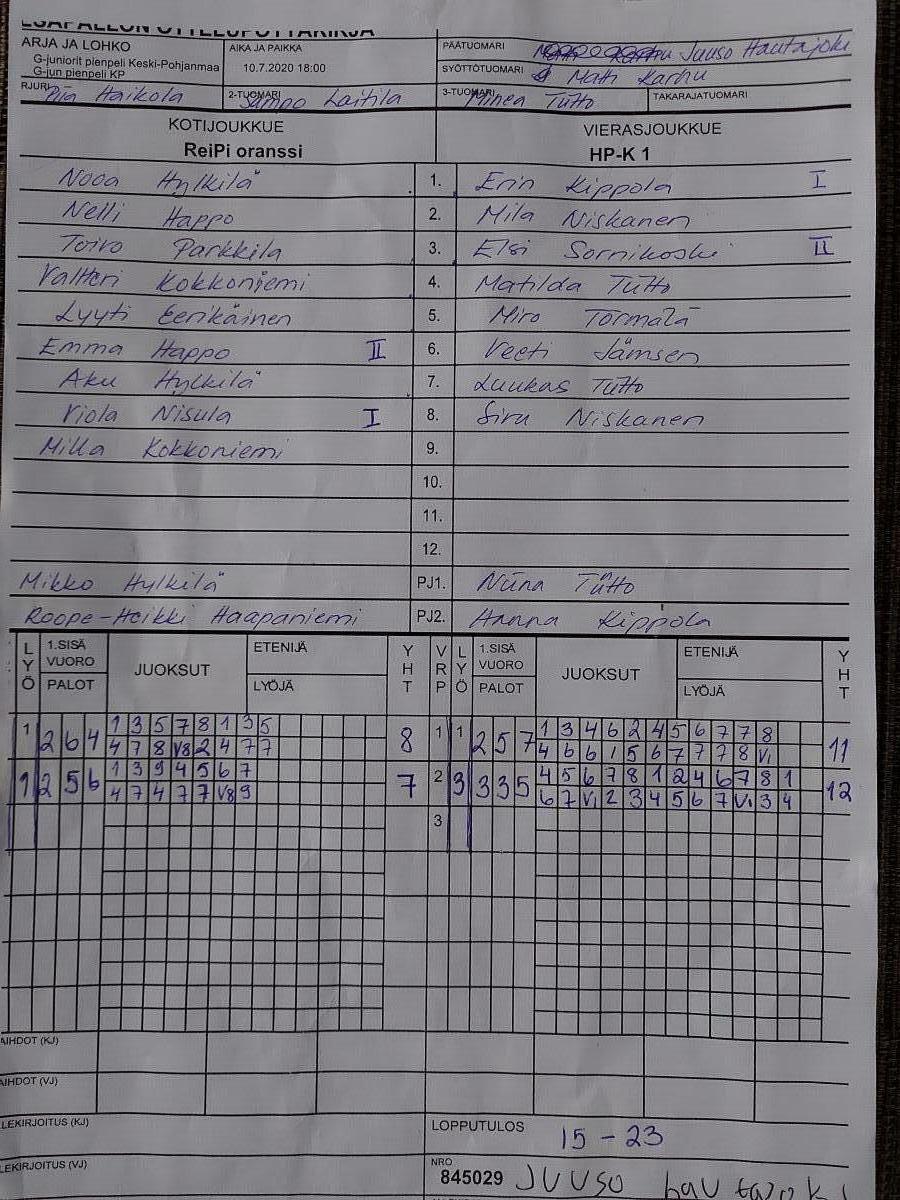 ARJA JA LOHKO
G-juniorit pienpeli Keski-Pohjanmaa
G-jun pienpeli KP
AIKA JA PAIKKA
10.7.2020 18:00
PÄÄTUOMARI Juuso Hautajoki
SYÖTTÖTUOMARI Mati Karhu
RJURI Pia Haikola
2-TUOMARI Sampo Laitila
3-TUOMARI Minea Tütto
TAKARAJATUOMARI
KOTIJOUKKUE VIERASJOUKKUE
ReiPi oranssi HP-K 1
Nooa Hylkilä 1. Erin Kippola I
Nelli Happo 2. Mila Niskanen
Toivo Parkkila 3. Elsi Sornikoski II
Valtteri Kokkoniemi 4. Matilda Tütto
Lyyti Eerikäinen 5. Miro Törmälä
Emma Happo II 6. Veeti Jämsen
Aku Hylkilä 7. Luukas Tütto
Viola Nisula I 8. Siru Niskanen
Milla Kokkoniemi 9.
10.
11.
12.
Mikko Hylkilä PJ1. Niina Tütto
Roope-Heikki Haapaniemi PJ2. Hanna Kippola
LYÖ 1.SISÄ VUORO PALOT JUOKSUT ETENIJÄ LYÖJÄ YHT VRP LYÖ 1.SISÄ VUORO PALOT JUOKSUT ETENIJÄ LYÖJÄ YHT
1 2 6 4 1 3 5 7 8 1 3 5 8 1 1 2 5 7 1 3 4 6 2 4 5 6 7 7 8 11
4 7 8 V8 2 4 7 7 4 6 6 1 5 6 7 7 7 8 V1
1 2 5 6 1 3 9 4 5 6 7 7 2 3 3 3 5 4 5 6 7 8 1 2 4 6 7 8 1 12
4 7 4 7 7 V8 9 6 7 V1 2 3 4 5 6 7 V1 3 4
3
AIHDOT (KJ)
AIHDOT (VJ)
LEKIRJOITUS (KJ) LOPPUTULOS 15 - 23
LEKIRJOITUS (VJ) NRO
845029 JUUSO hautajoki